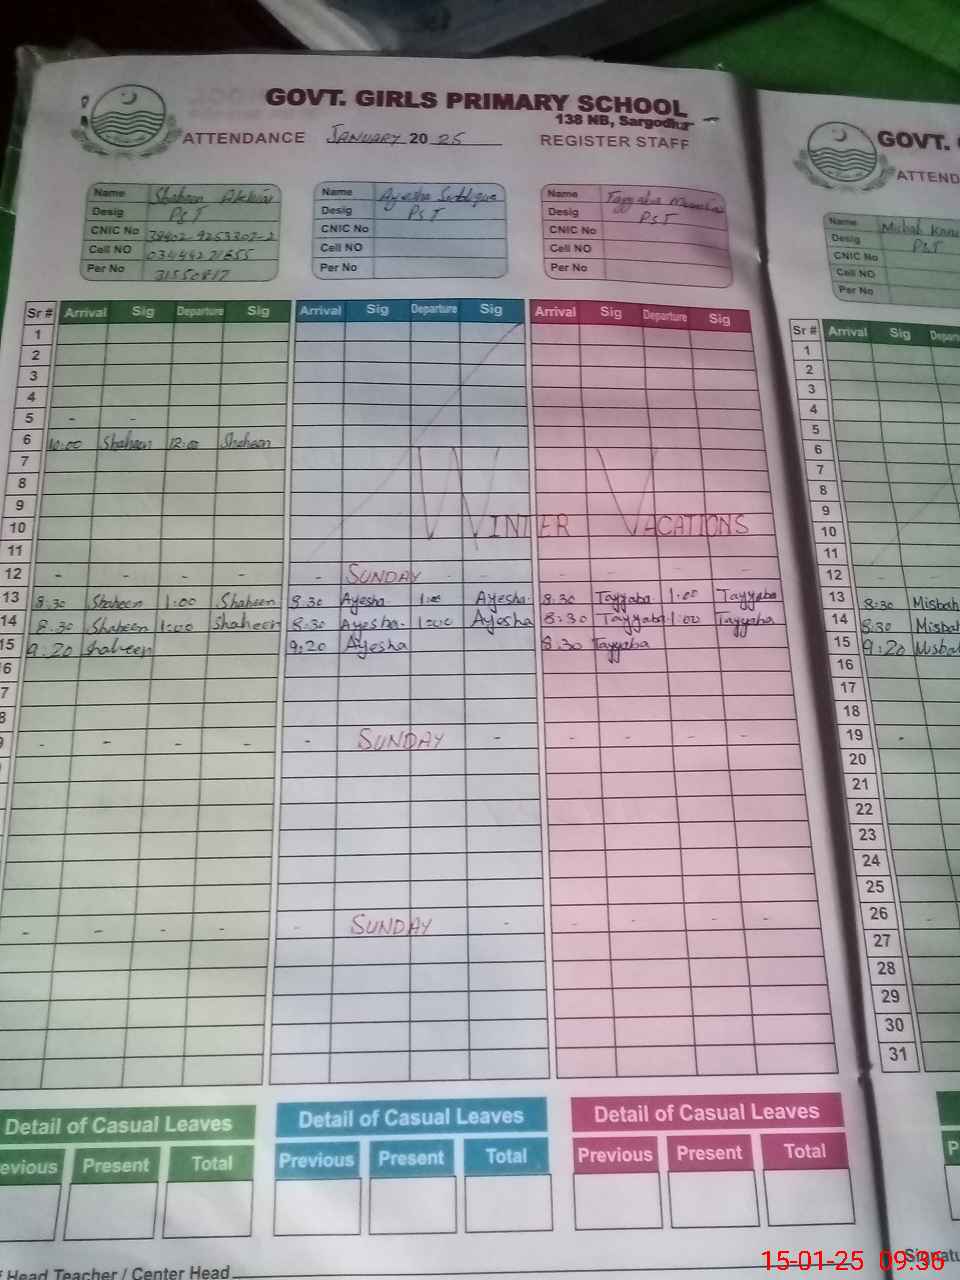 GOVT. GIRLS PRIMARY SCHOOL
138 NB, Sargodha
ATTENDANCE JANUARY 2025 REGISTER STAFF
Name Shaheen
Desig PST
CNIC No 38402-9253202-2
Cell NO
Per No
Name Ayesha
Desig PST
CNIC No
Cell NO
Per No
Name Tayyaba
Desig PST
CNIC No
Cell NO
Per No
Sr # Arrival Sig Departure Sig Arrival Sig Departure Sig Arrival Sig Departure Sig
1
2
3
4
5 - -
6 10:00 Shaheen 12:00 Shaheen
7
8
9
10 WINTER VACATIONS
11
12 - - - - - SUNDAY - - - - - -
13 8:30 Shaheen 1:00 Shaheen 8:30 Ayesha 1:00 Ayesha 8:30 Tayyaba 1:00 Tayyaba
14 8:30 Shaheen 1:00 Shaheen 8:30 Ayesha 1:00 Ayesha 8:30 Tayyaba 1:00 Tayyaba
15 9:20 Shaheen 9:20 Ayesha 8:30 Tayyaba
6
7
8
9 - - - - - SUNDAY - - - - -
- - - - - SUNDAY - - - - -
Detail of Casual Leaves
Previous Present Total
Detail of Casual Leaves
Previous Present Total
Detail of Casual Leaves
Previous Present Total
Head Teacher / Center Head
GOVT.
ATTEND
Name Misbah
Desig PST
CNIC No
Cell NO
Per No
Sr # Arrival Sig Depart
1
2
3
4
5
6
7
8
9
10
11
12 - -
13 8:30 Misbah
14 8:30 Misbah
15 9:20 Misba
16
17
18
19 -
20
21
22
23
24
25
26 -
27
28
29
30
31
P
Signatu
15-01-25 09:36